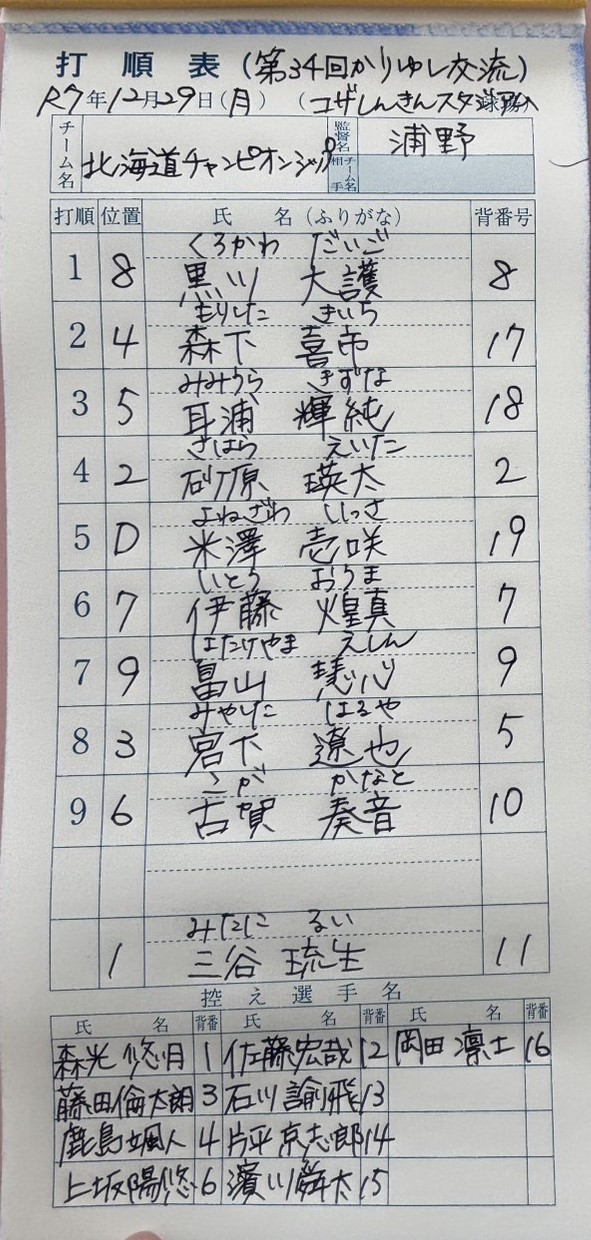 打順表(第34回かりゆし交流)
R7年12月29日(月) (コザしんきんスタ
チーム名 北海道チャンピオンシップ 監督名 浦野
相手チーム名
打順 位置 氏名(ふりがな) 背番号
くろかわ だいご
1 8 黒川 大護 8
もりした きいち
2 4 森下 喜市 17
みみうら きずな
3 5 耳浦 輝純 18
さはら えいた
4 2 砂原 瑛太 2
よねざわ いっさ
5 D 米澤 壱咲 19
いとう おうま
6 7 伊藤 煌真 7
はたけやま えしん
7 9 畠山 慧心 9
みやした はるや
8 3 宮下 遼也 5
こが かなと
9 6 古賀 奏音 10
みたに るい
1 三谷 琉生 11
控え選手名
氏名 背番 氏名 背番 氏名 背番
森光 悠月 1 佐藤宏哉 12 岡田 凛士 16
藤田倫太朗 3 石川諭飛 13
鹿島颯人 4 片平京志郎 14
上坂陽悠 6 濱川舜太 15